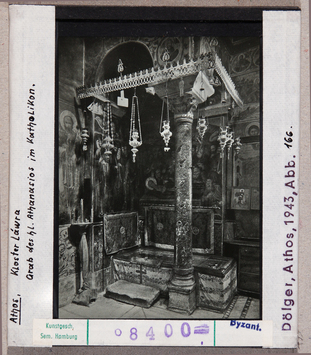 Athos. Kloster Láwra
Grab des hl. Athanasios im Katholikon.
Dölger, Athos, 1943, Abb. 166.
Kunstgesch.
Sem. Hamburg
08400
Byzant.